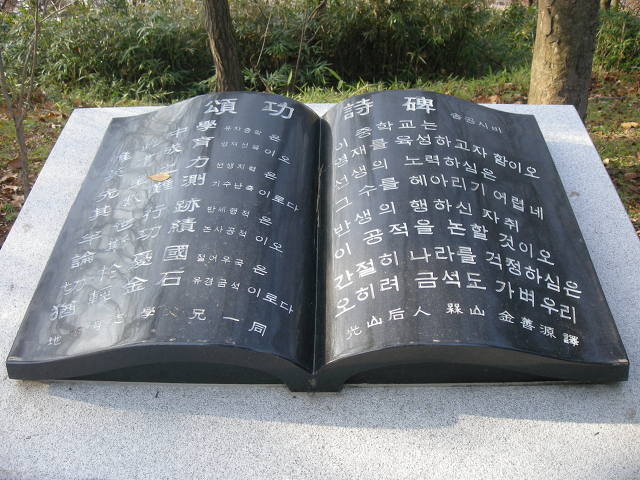 頌功詩碑 송공시비
中學 유차중학 은
育 영재선육 이오
力 선생지력 은
其 難測 기수난측 이로다
半世行跡 반세행적 은
論 功績 논사공적 이오
切於憂國 절어우국 은
猶輕金石 유경금석 이로다
地 學父兄一同
이 중학교는
영재를 육성하고자 함이오
선생의 노력하심은
그 수를 헤아리기 어렵네
반생의 행하신 자취
이 공적을 논할 것이오
간절히 나라를 걱정하심은
오히려 금석도 가벼우리
光山后人 槑山 金善源 譯